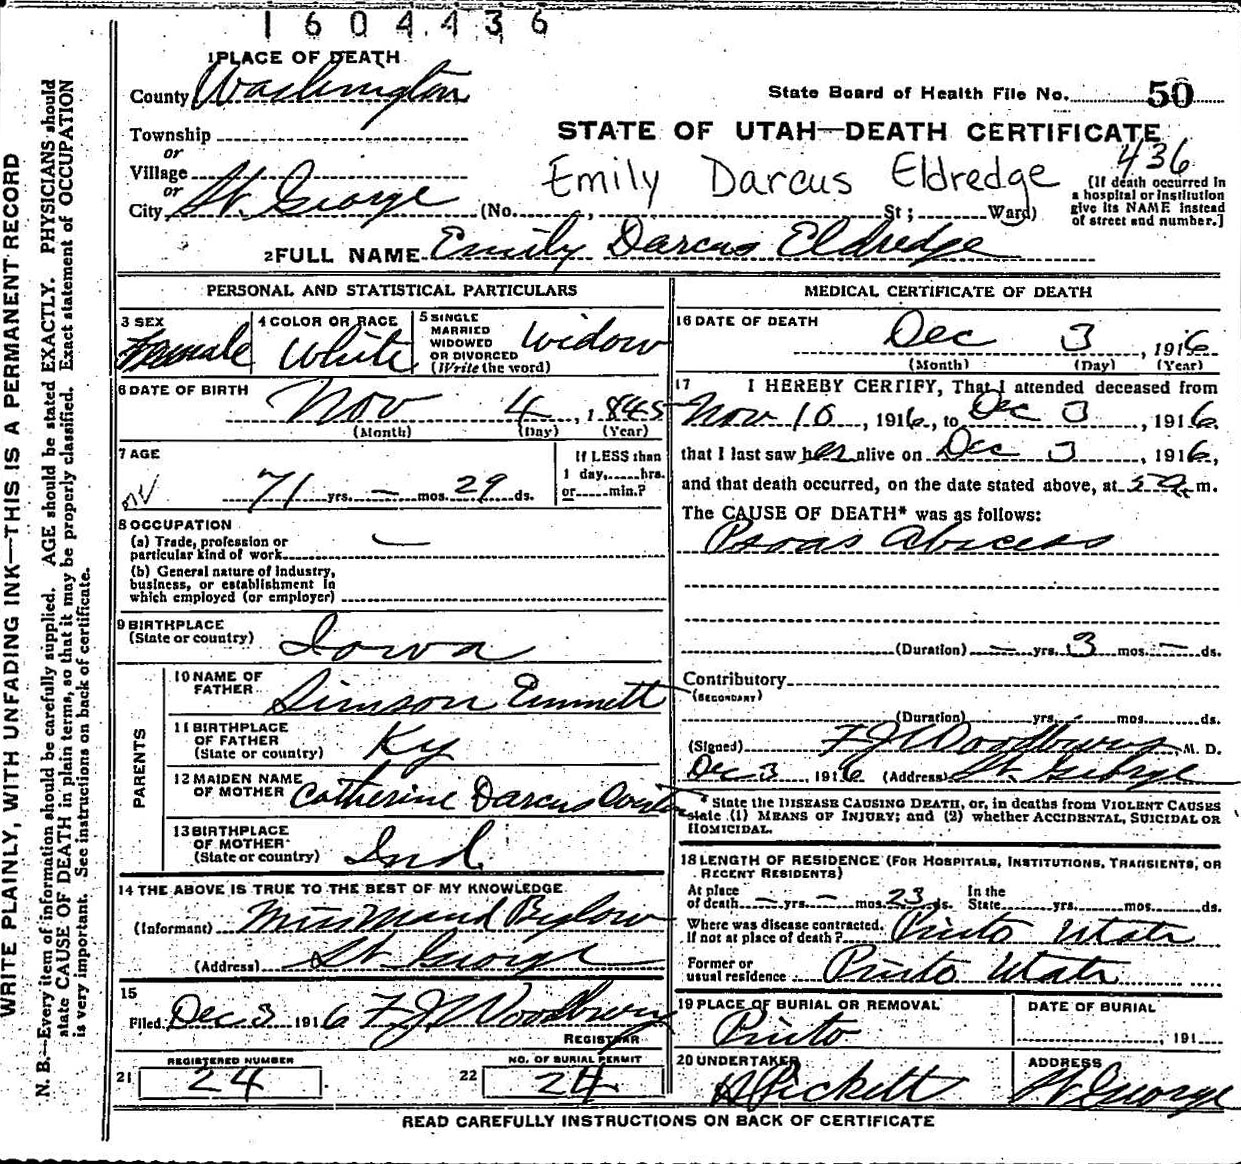 1604436
1 PLACE OF DEATH
County Washington
State Board of Health File No. 50
Township
or
Village
or
City St. George
STATE OF UTAH—DEATH CERTIFICATE
436
Emily Darcus Eldredge
(No. , St; Ward)
(If death occurred in
a hospital or institution
give its NAME instead
of street and number.]
2 FULL NAME Emily Darcus Eldredge
PERSONAL AND STATISTICAL PARTICULARS
3 SEX
Female
4 COLOR OR RACE
White
5 SINGLE
MARRIED
WIDOWED
OR DIVORCED
(Write the word)
Widow
6 DATE OF BIRTH
Nov 4, 1845
(Month) (Day) (Year)
7 AGE
71 yrs. — mos. 29 ds.
If LESS than
1 day, hrs.
or min.?
8 OCCUPATION
(a) Trade, profession or
particular kind of work —
(b) General nature of industry,
business, or establishment in
which employed (or employer)
9 BIRTHPLACE
(State or country) Iowa
PARENTS
10 NAME OF
FATHER Simson Emmett
11 BIRTHPLACE
OF FATHER
(State or country) Ky
12 MAIDEN NAME
OF MOTHER Catherine Darcus
13 BIRTHPLACE
OF MOTHER
(State or country) Ind
14 THE ABOVE IS TRUE TO THE BEST OF MY KNOWLEDGE
(Informant) Maud Biglow
(Address) St. George
15
Filed Dec 3 1916 F J Woodbury
REGISTRAR
REGISTERED NUMBER
21 24
NO. OF BURIAL PERMIT
22 24
MEDICAL CERTIFICATE OF DEATH
16 DATE OF DEATH
Dec 3, 1916
(Month) (Day) (Year)
17 I HEREBY CERTIFY, That I attended deceased from
Nov 10, 1916, to Dec 3, 1916.
that I last saw her alive on Dec 3, 1916,
and that death occurred, on the date stated above, at 5 a. m.
The CAUSE OF DEATH* was as follows:
Psoas Abscess
(Duration) — yrs. 3 mos. — ds.
Contributory
(SECONDARY)
(Duration) yrs. mos. ds.
(Signed) F J Woodbury M. D.
Dec 3, 1916 (Address) St. George
* State the DISEASE CAUSING DEATH, or, in deaths from VIOLENT CAUSES
state (1) MEANS OF INJURY; and (2) whether ACCIDENTAL, SUICIDAL OR
HOMICIDAL.
18 LENGTH OF RESIDENCE (FOR HOSPITALS, INSTITUTIONS, TRANSIENTS, OR
RECENT RESIDENTS)
At place
of death — yrs. — mos. 23 ds.
In the
State yrs. mos. ds.
Where was disease contracted.
If not at place of death? Pinto Utah
Former or
usual residence Pinto Utah
19 PLACE OF BURIAL OR REMOVAL
Pinto
DATE OF BURIAL
, 191
20 UNDERTAKER
Pickett
ADDRESS
St George
READ CAREFULLY INSTRUCTIONS ON BACK OF CERTIFICATE
WRITE PLAINLY, WITH UNFADING INK—THIS IS A PERMANENT RECORD
N. B.—Every item of information should be carefully supplied. AGE should be stated EXACTLY. PHYSICIANS should
state CAUSE OF DEATH in plain terms, so that it may be properly classified. Exact statement of OCCUPATION
is very important. See instructions on back of certificate.